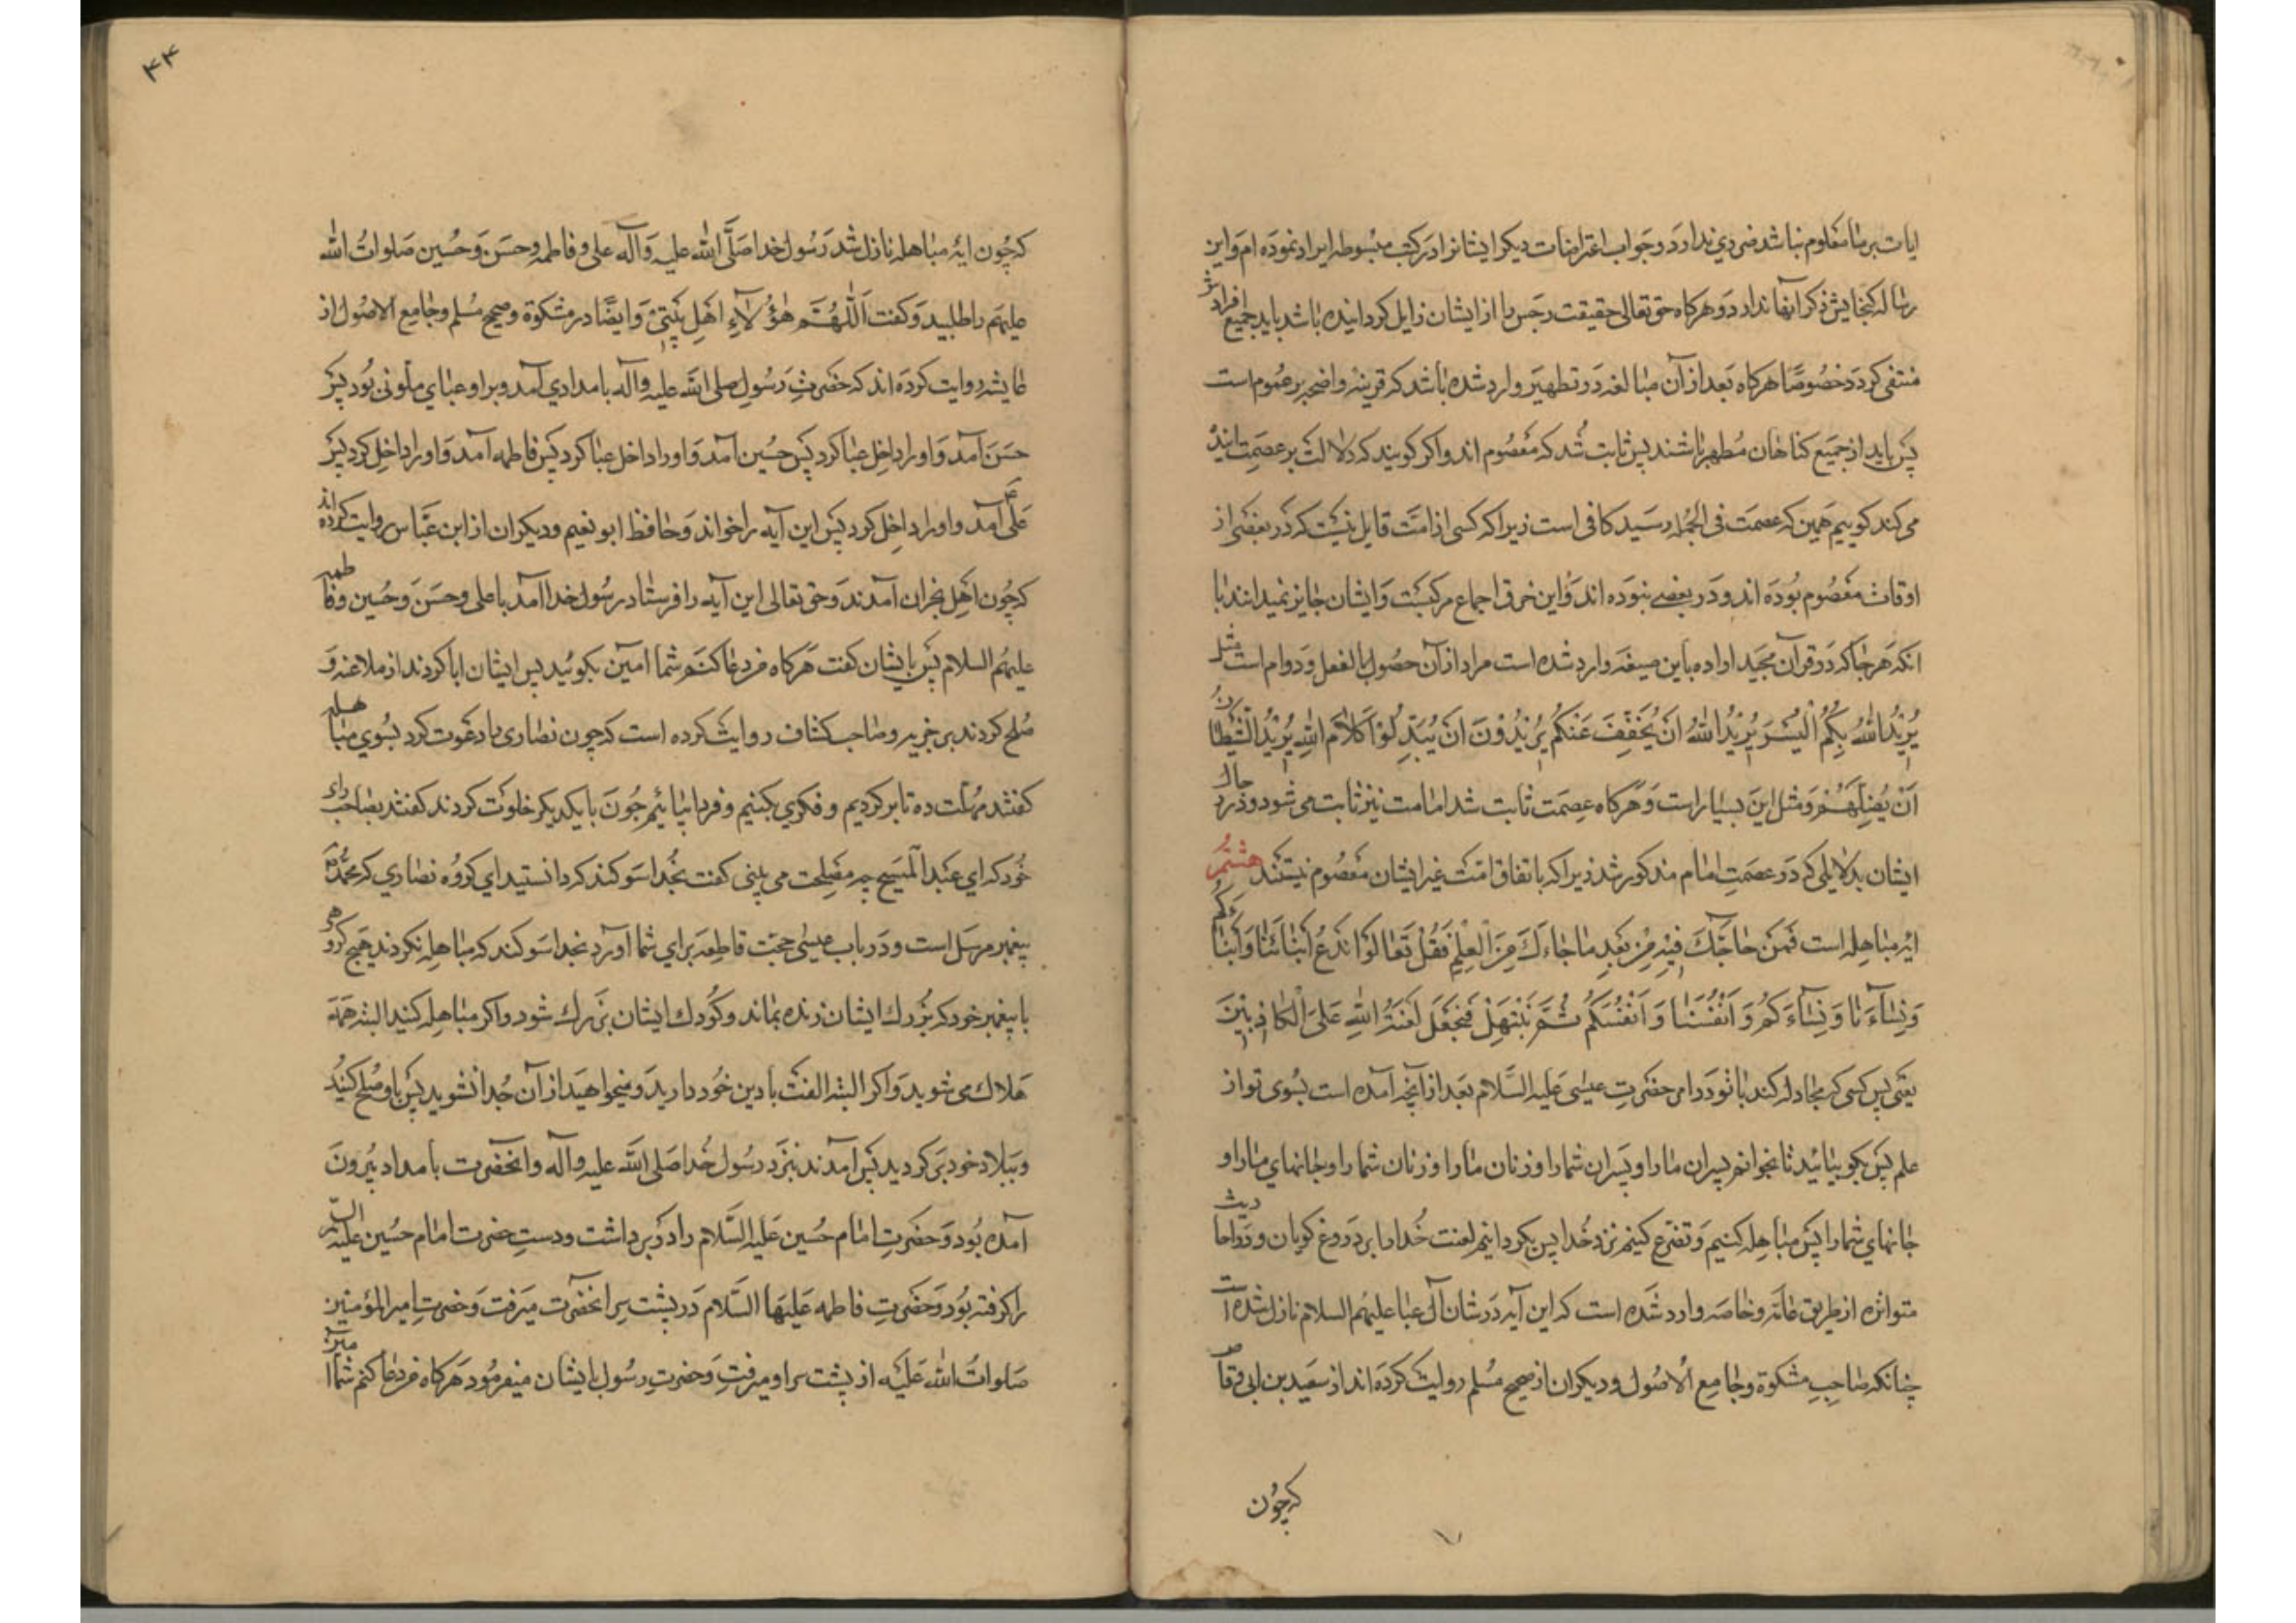 ایات بر ما معلوم نباشد ضرری ندارد و جواب اعتراضات دیکر ایشانرا در کتب مبسوطه ایراد نموده ام و این
رساله کنجایش ذکر آنها ندارد و هرکاه حق تعالی حقیقت رجس را از ایشان زایل کردانیده باشد باید جمیع افرادش
منتفی کردد خصوصًا هرکاه بعد از آن مبالغه در تطهیر وارد شده باشد که قرینهٔ واضحه بر عموم است
پس باید از جمیع کناهان مُطهر باشند پس ثابت شد که معصوم اند و اکر کویند که دلالت بر عصمت ایند
می کند کوییم همین که عصمت فی الجمله رسید کافی است زیرا که کسی از امّت قایل نیست که در بعضی از
اوقات معصوم بوده اند و در بعضے نبوده اند و این خرق اجماع مرکبست و ایشان جایز نمیدانند با
انکه هر جا که در قرآن مجید اراده باین صیغه وارد شده است مراد از آن حصول بالفعل و دوام است مثل
یُرِیْدُ اللهُ بِکُمُ الْیُسْرَ یُرِیْدُ اللهُ اَنْ یُخَفِّفَ عَنْکُمْ یُرِیْدُوْنَ اَنْ یُبَدِّلُوْا کَلَامَ اللهِ یُرِیْدُ الشَّیْطَانُ
اَنْ یُضِلَّهُمْ و مثل این بسیار است و هرکاه عصمت ثابت شد امامت نیز ثابت می شود و در رجال
ایشان بدلایلی که در عصمت امام مذکور شد زیرا که باتفاق امّت غیر ایشان معصوم نیستند هشتمُ
ایهٔ مباهله است فَمَنْ حَاجَّکَ فِیْهِ مِنْ بَعْدِ مَا جَاءَكَ مِنَ الْعِلْمِ فَقُلْ تَعَالَوْا نَدْعُ اَبْنَائَنَا وَاَبْنَاءَکُمْ
وَنِسَآءَنَا وَنِسَآءَکُمْ وَاَنْفُسَنَا وَاَنْفُسَکُمْ ثُمَّ نَبْتَهِلْ فَنَجْعَلْ لَعْنَتُ اللهِ عَلَی الْکَاذِبِیْنَ
یعنی پس کسی که مجادله کند با تو در امر حضرتِ عیسی علیه السّلام بعد از آنچه آمده است بسوی تو از
علم پس بکو بیائید تا بخوانم پسران ما را و پسران شما را و زنان ما را و زنان شما را و جانهای ما را و
جانهای شما را پس مباهله کنیم و تضرع کنیم نزد خُدا پس بکردانیم لعنت خُدا را بر دروغ کویان و در احادیث
متواتره از طریق عامّه و خاصه وارد شده است که این آیه در شان آل عبا علیهم السلام نازل شده است
چنانکه صاحبِ مشکوة و جامع الاصُول و دیکران از صحیح مُسلم روایت کرده اند از سعید بن ابی وقاص
که چون
۴۴
که چُون ایهٔ مباهله نازل شد رَسُول خدا صَلَّی اللهُ علیه وَآله علی و فاطمه و حسَن وَ حُسین صَلواتُ الله
علیهم را طلبید و کفت اَللّٰهُمَّ هٰؤُلَآءِ اَهْلِ بَیْتِیْ وَایضًا در مشکوة و صحیح مُسلم و جامع الاصُول از
عایشه روایت کرده اند که حضرتِ رَسُول صلی الله علیه و آله بامدادی آمد و بر او عبای ملونی بُود پس
حسَن آمد وَاو را داخل عبا کرد پس حُسین آمد وَاو را داخل عبا کرد پس فاطمه آمد وَاو را داخل کرد پس
علی ع آمد و او را داخل کرد پس این آیه را خواند وَحافظ ابو نعیم و دیکران از ابن عبّاس روایت کرده اند
که چُون اَهل نجران آمدند وَحق تعالی این آیه را فرستاد رسُول خدا آمد با علی و حسَن وَ حُسین و فاطمه
علیهم السلام پس بایشان کفت هرکاه من دعا کنم شما امین بکوئید پس ایشان ابا کردند از ملاعنه وَ
صُلح کردند بر جزیه و صاحب کشاف روایت کرده است که چون نصاری را دعوت کرد بسُوی مباهله
کفتند مهلت ده تا برکردیم و فکری بکنیم و فردا بیائیم چون با یکدیکر خلوت کردند کفتند بصاحب رای
خُود که ای عبد المسیح چه مصلحت می بینی کفت بخُدا سَوکند که دانستید ای کروُه نصاری که محمّد ص
پیغمبر مرسَل است و در باب عیسی حجّت قاطعه برای شما آورد بخدا سَوکند که مباهله نکردند هیچ کروهی
با پیغمبر خود که بزُرك ایشان زنده بماند و کُودك ایشان بزرك شود و اکر مباهله کنید البته همه
هلاك می شوید وَاکر البته الفت با دین خُود دارید وَ میخواهید از آن جُدا نشوید پس با او صُلح کنید
و ببلاد خود برکردید پس آمدند بنزد رسُول خُدا صَلی الله علیه و آله و انحضرت بامداد بیرون
آمده بُود وَحضرتِ امام حُسین عَلیه السَّلام را در بر داشت و دستِ حضرت امام حسین علیه السّلام
را کرفته بُود وَحضرتِ فاطمه عَلیها السَّلام در پشت سر انحضرت میرفت وَحضرتِ امیر المؤمنین
صَلواتُ الله عَلیه از پشت سر او میرفتِ وَحضرتِ رسُول بایشان میفرمُود هرکاه من دعا کنم شما آمین